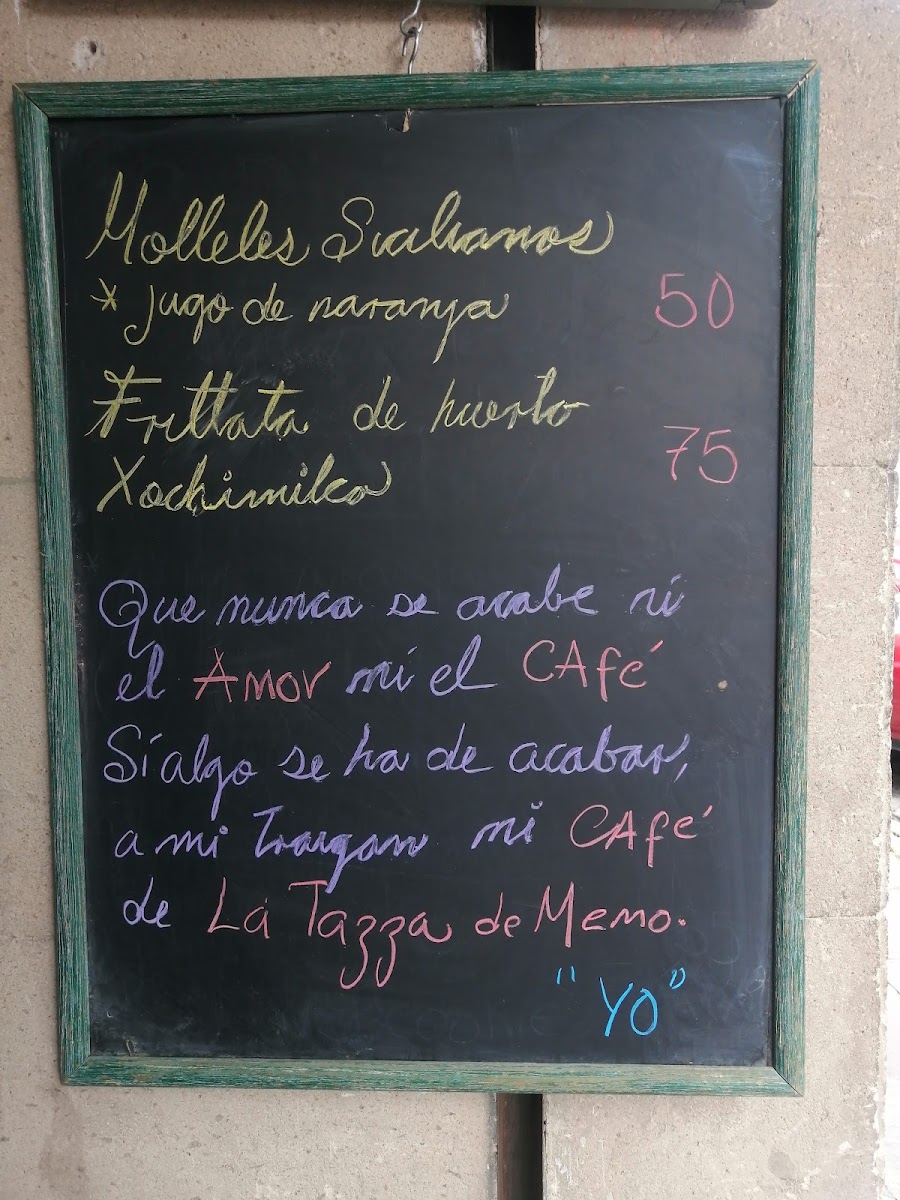 Molletes Sicilianos
* Jugo de naranja 50
Frittata de huerto
Xochimilco 75
Que nunca se acabe ni
el Amor ni el CAfé
Sí algo se ha de acabar,
a mi Traigan mi CAfé
de La Tazza de Memo.
"YO"